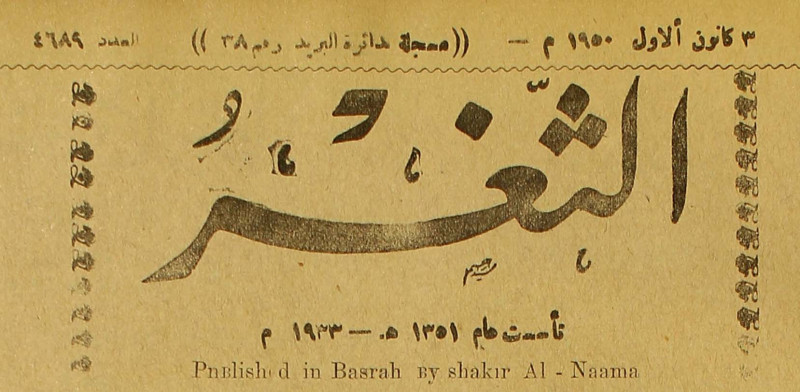 ٣ كانون ألاول ١٩٥٠ م — ((مسجلة بدائرة البريد رقم ٣٨)) العدد ٤٦٨٩
الثَّغْرُ
تأسست عام ١٣٥١ هـ — ١٩٣٣ م
Published in Basrah By shakir Al - Naama